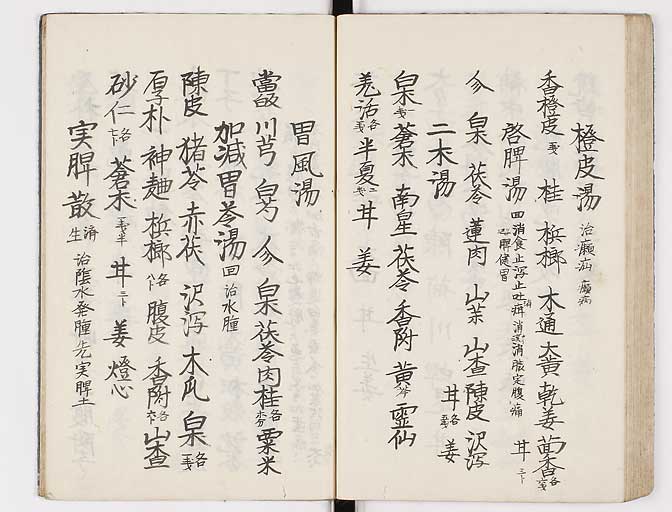 橙皮湯
香橙皮 戔 桂 檳榔 木通 大黄 乾姜 茴香 各戔
啓脾湯 回 消食止瀉止吐 消脹定腹痛 益脾健胃 甘 三卜
人 白朮 茯苓 蓮肉 山薬 山査 陳皮 沢瀉
甘 各 姜
二朮湯
白朮 蒼朮 南星 茯苓 香附 黄芩 霊仙
羗活 各戔 半夏 甘 姜
胃風湯
當皈 川芎 白芍 人 白朮 茯苓 肉桂 各 粟米
加減胃苓湯 回 治水腫
陳皮 猪苓 赤茯 沢瀉 木瓜 白朮 各戔
厚朴 神麯 檳榔 各 腹皮 香附 各 山査
砂仁 各七卜 蒼朮 戔半 甘 二卜 姜 燈心
実脾散 済生 治陰水発腫先実脾土